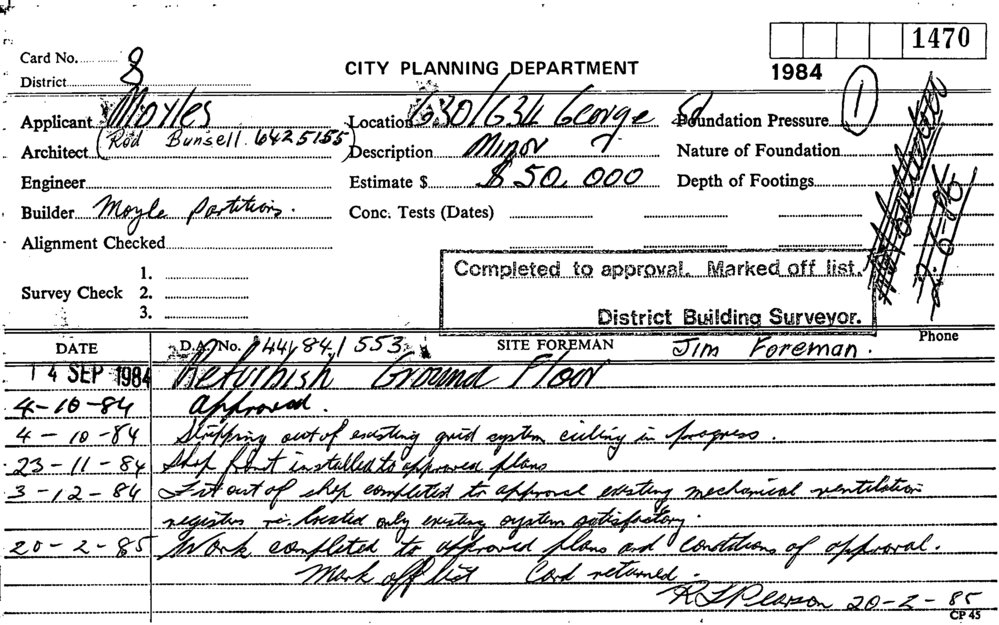 1470
Card No. 8
CITY PLANNING DEPARTMENT
1984
1
District
Applicant Moyles
Location 630/634 George St
Foundation Pressure
Architect (Rod Bunsell. 6425155)
Description Minor
Nature of Foundation
Engineer
Estimate $ $50,000
Depth of Footings
Builder Moyle Partitions.
Conc. Tests (Dates)
Alignment Checked
Survey Check 1.
2.
3.
Completed to approval. Marked off list.
District Building Surveyor.
2-6-86
DATE
D.A. No. 44/84/1553
SITE FOREMAN Jim Foreman.
Phone
14 SEP 1984 Refurbish Ground Floor
4-10-84 approved.
4-10-84 Stripping out of existing grid system ceiling in progress.
23-11-84 Shop front installed to approved plans
3-12-84 Fit out of shop completed to approval existing mechanical ventilation
registers re. located only existing system satisfactory.
20-2-85 Work completed to approved plans and conditions of approval.
Mark off list Card returned.
R L Pearson 20-2-85
CP 45